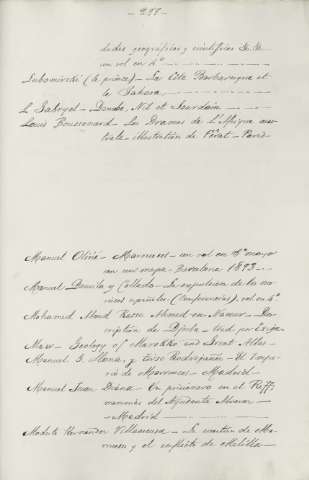 - 291. -
dades geográficas y científicas &. &.
un vol en 4º
Lubomirski (le prince) - La Côte Barbaresque et
le Sahara
L Gabryel - Danube, Nil et Jourdain
Louis Boussenard - Les Drames de L'Afrique aus-
trale - illustration de Férat - Paris
Manuel Olivié - Marruecos - un vol en 4º mayor
con un mapa - Barcelona 1893 -
Manuel Danvila y Collado - La expulsion de los mo-
riscos españoles. (Conferencias), vol en 4º
Mohamed Aboud Ahmed en Naceur - Des-
cription de Djerba - trad par
Maw - Geology of Marokko and Great Atlas -
Manuel G. Llana, y Tirso Rodrigañez - El Impe-
rio de Marruecos - Madrid -
Manuel Juan Diana - Un prisionero en el Riff.
memorias del Ayudante Alvarez
- Madrid -
Modesto Hernandez Villaescusa - La cuestion de Ma-
rruecos y el conflicto de Melilla -